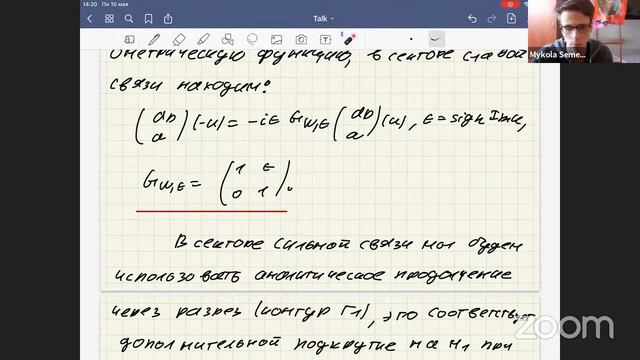 14:20 Пн 10 мая
Talk
Mykola Seme...
ометрическую функцию, в секторе слабой
связи находим:
(aD a)(-u) = -iε G_{W,ε} (aD a)(u), ε = sign Im u,
G_{W,ε} = (1 ε 0 1).
В секторе сильной связи мы будем
использовать аналитическое продолжение
через разрез (контур Г1), это соответствует
дополнительной подкрутке на M1 при
zoom